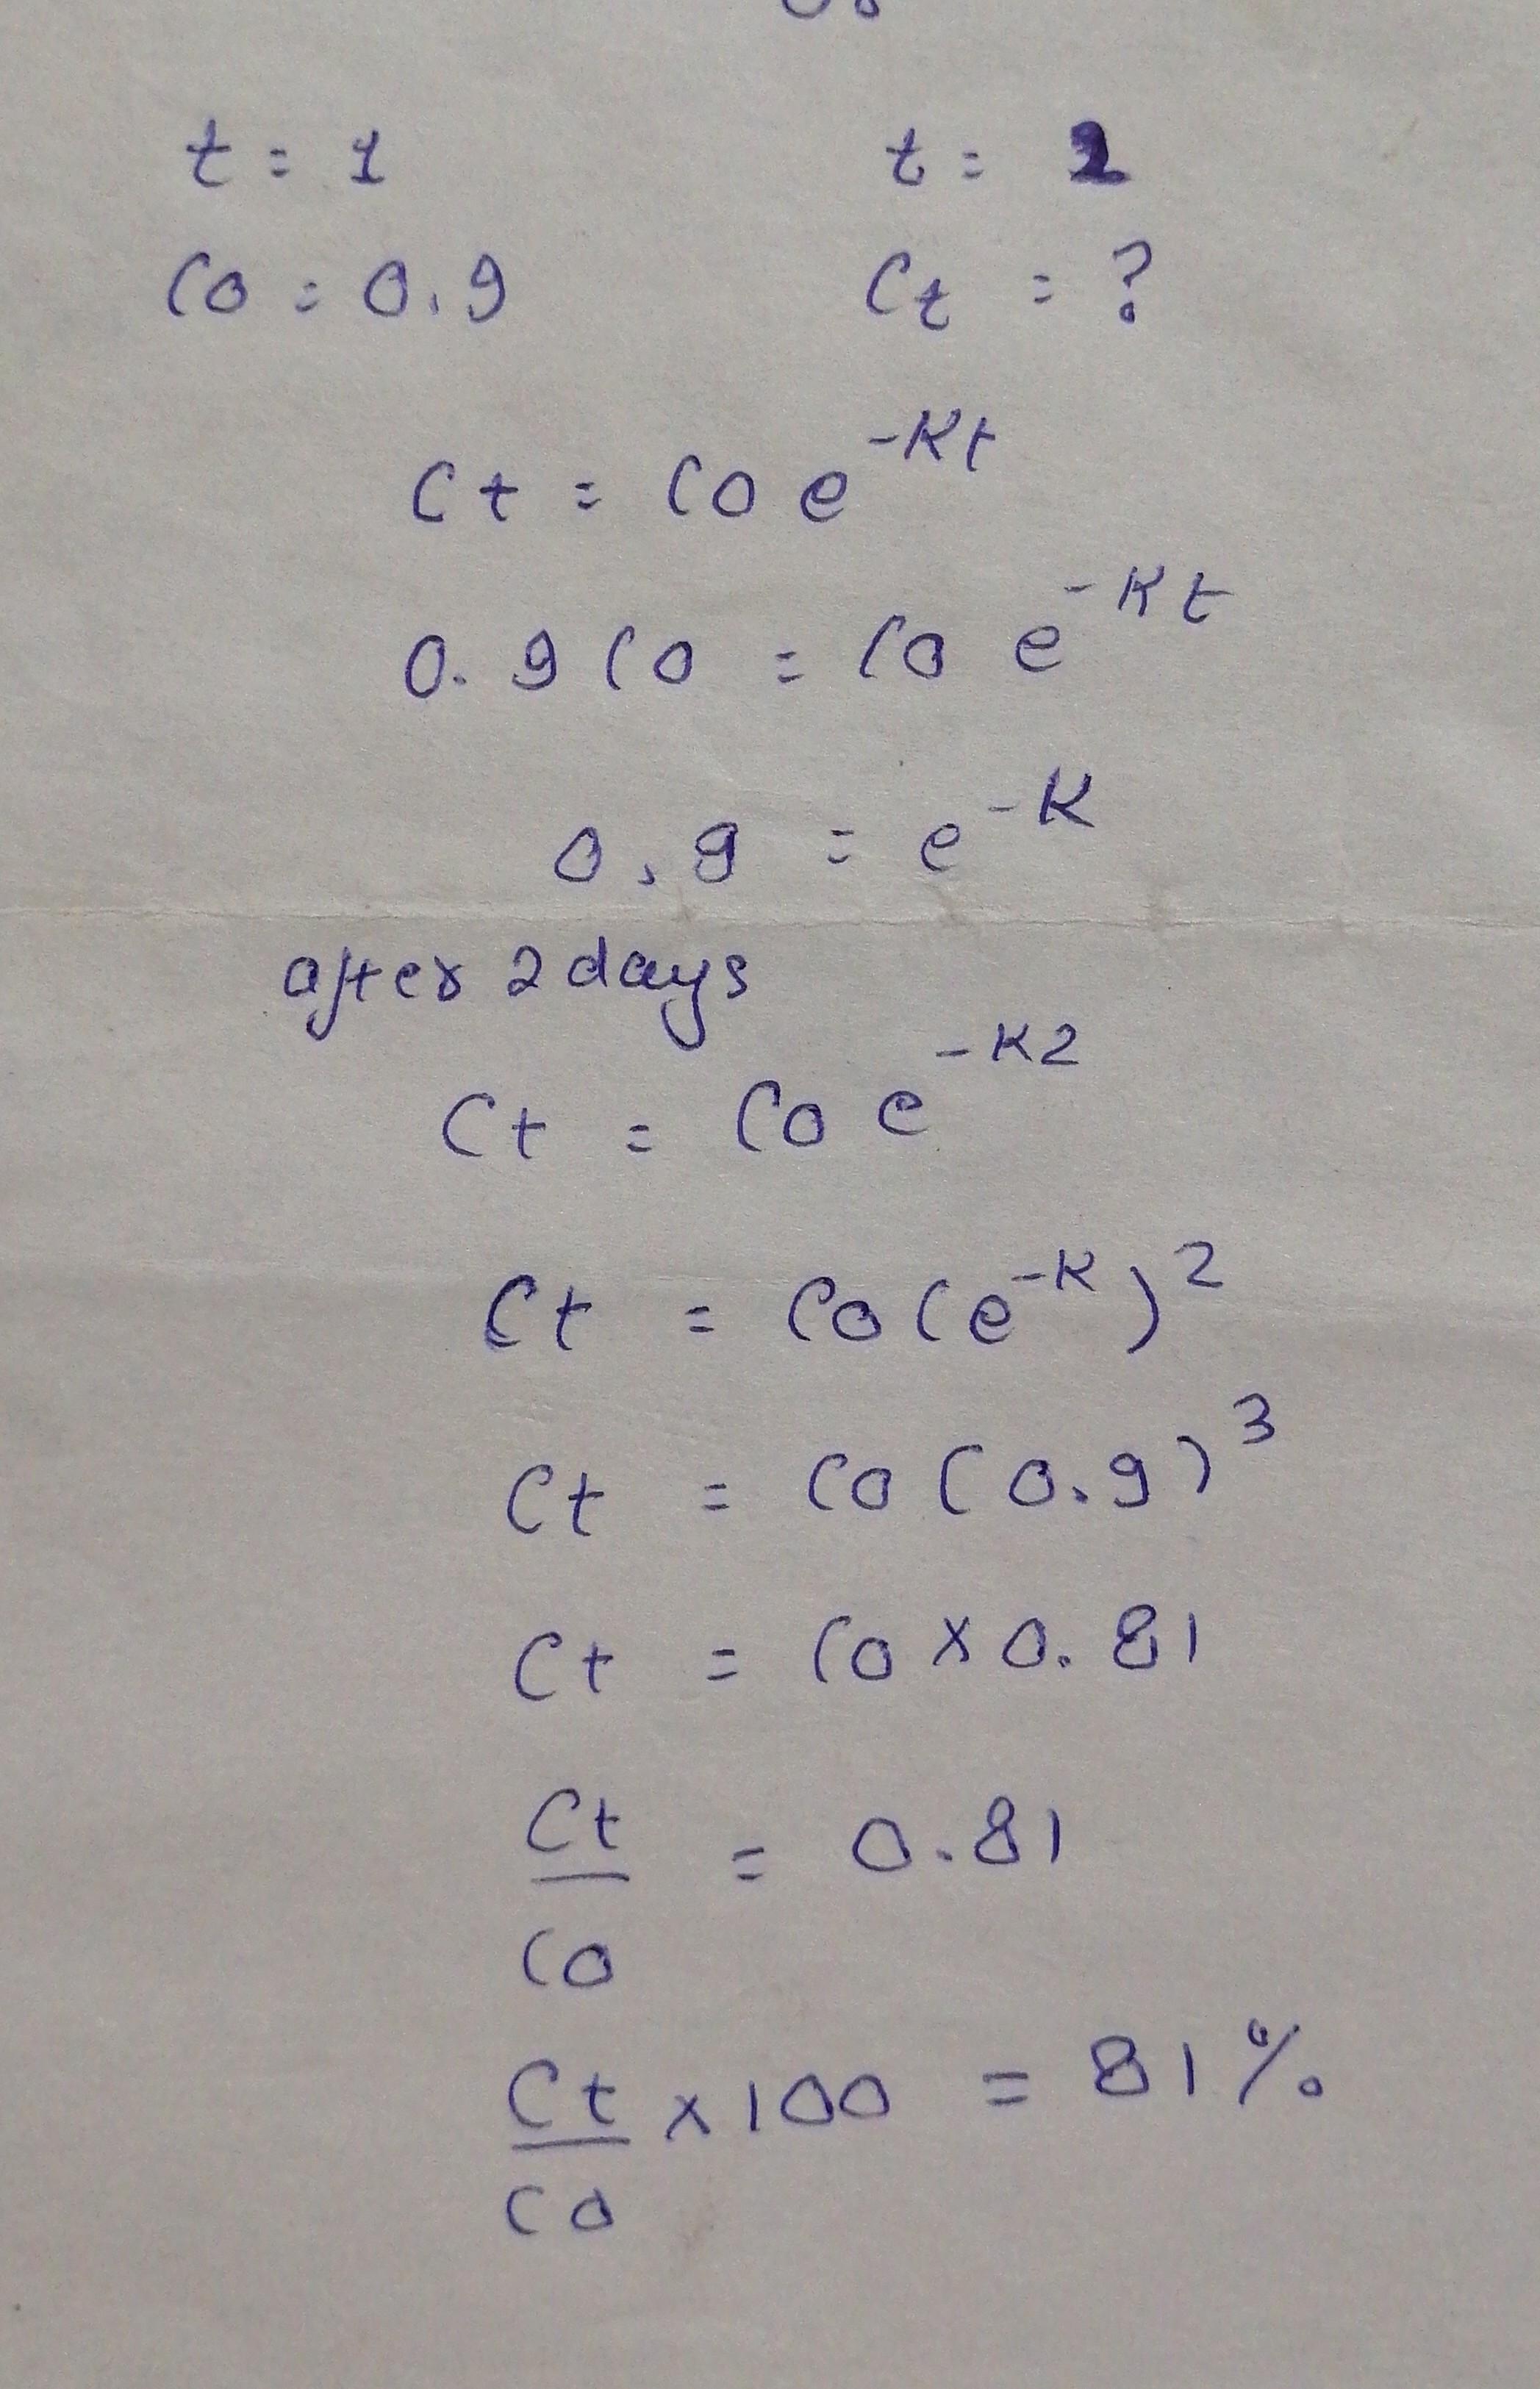 t = 1 t = 2
Co = 0.9 Ct = ?
Ct = Co e^-Kt
0.9 Co = Co e^-Kt
0.9 = e^-K
after 2 days
Ct = Co e^-K2
Ct = Co (e^-K)^2
Ct = Co (0.9)^3
Ct = Co x 0.81
Ct/Co = 0.81
Ct/Co x 100 = 81%